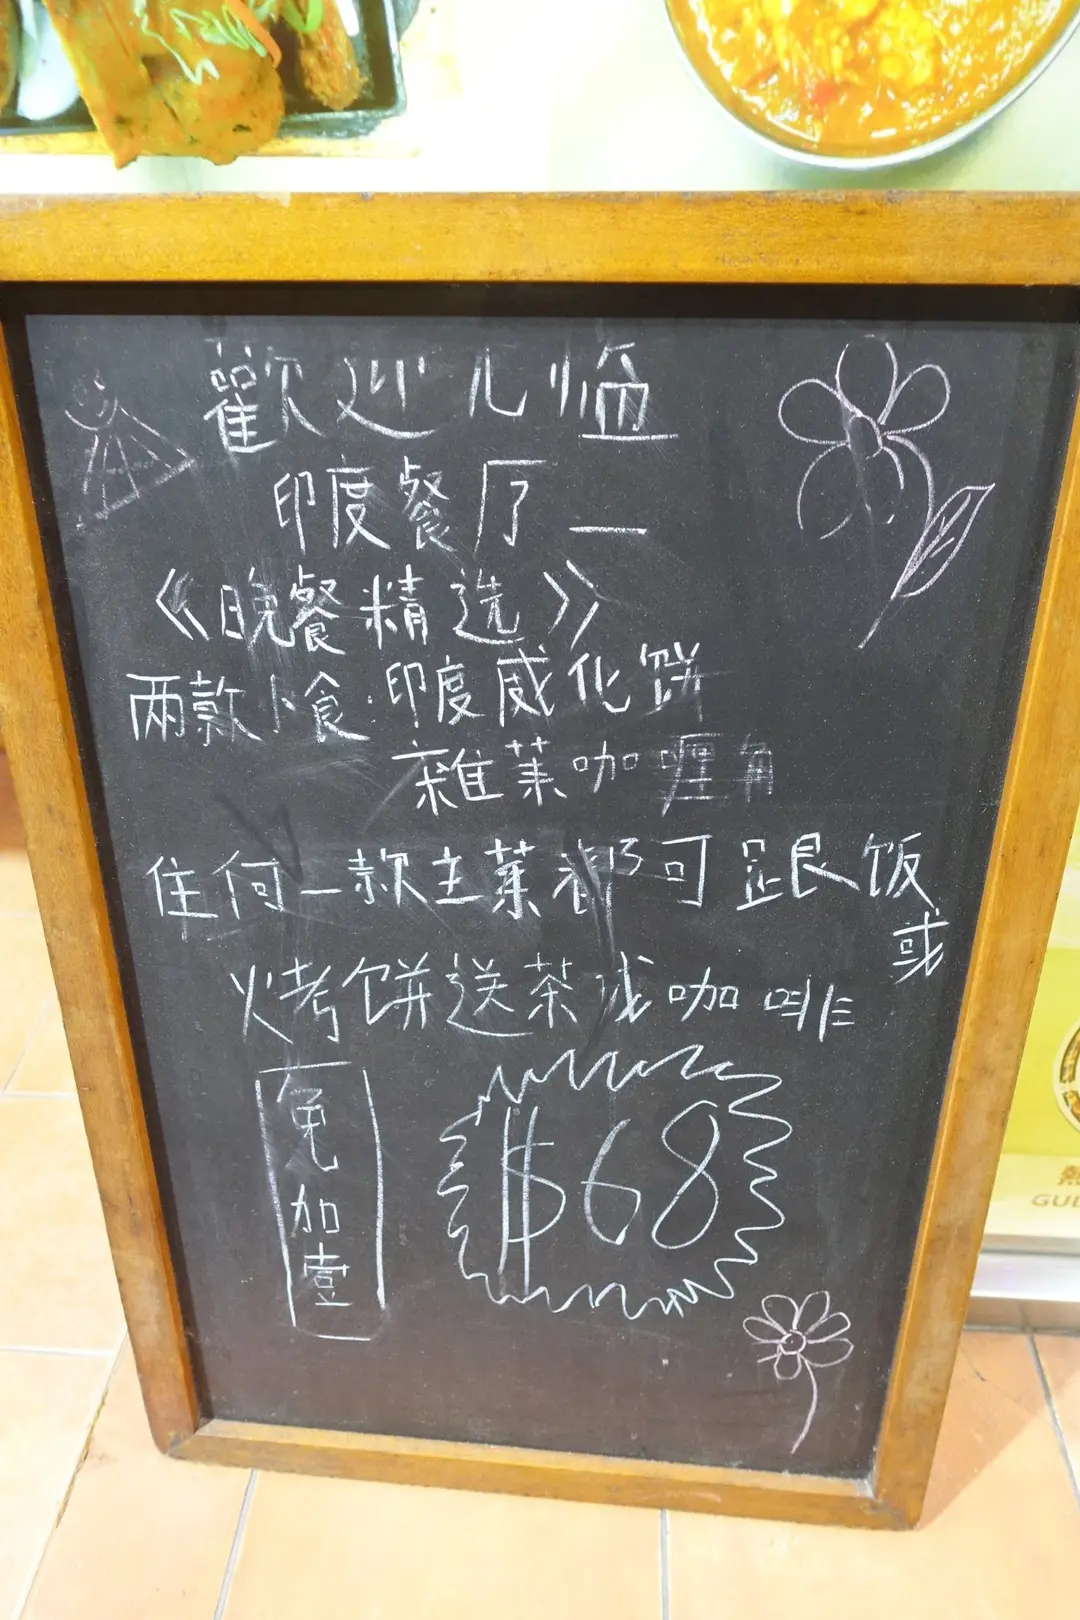 歡迎光臨
印度餐厅—
《晚餐精选》
两款小食:印度威化餅
雜菜咖喱角
任何一款主菜都可跟饭
或
烤餅送茶或咖啡
免加壹
$68
GUL